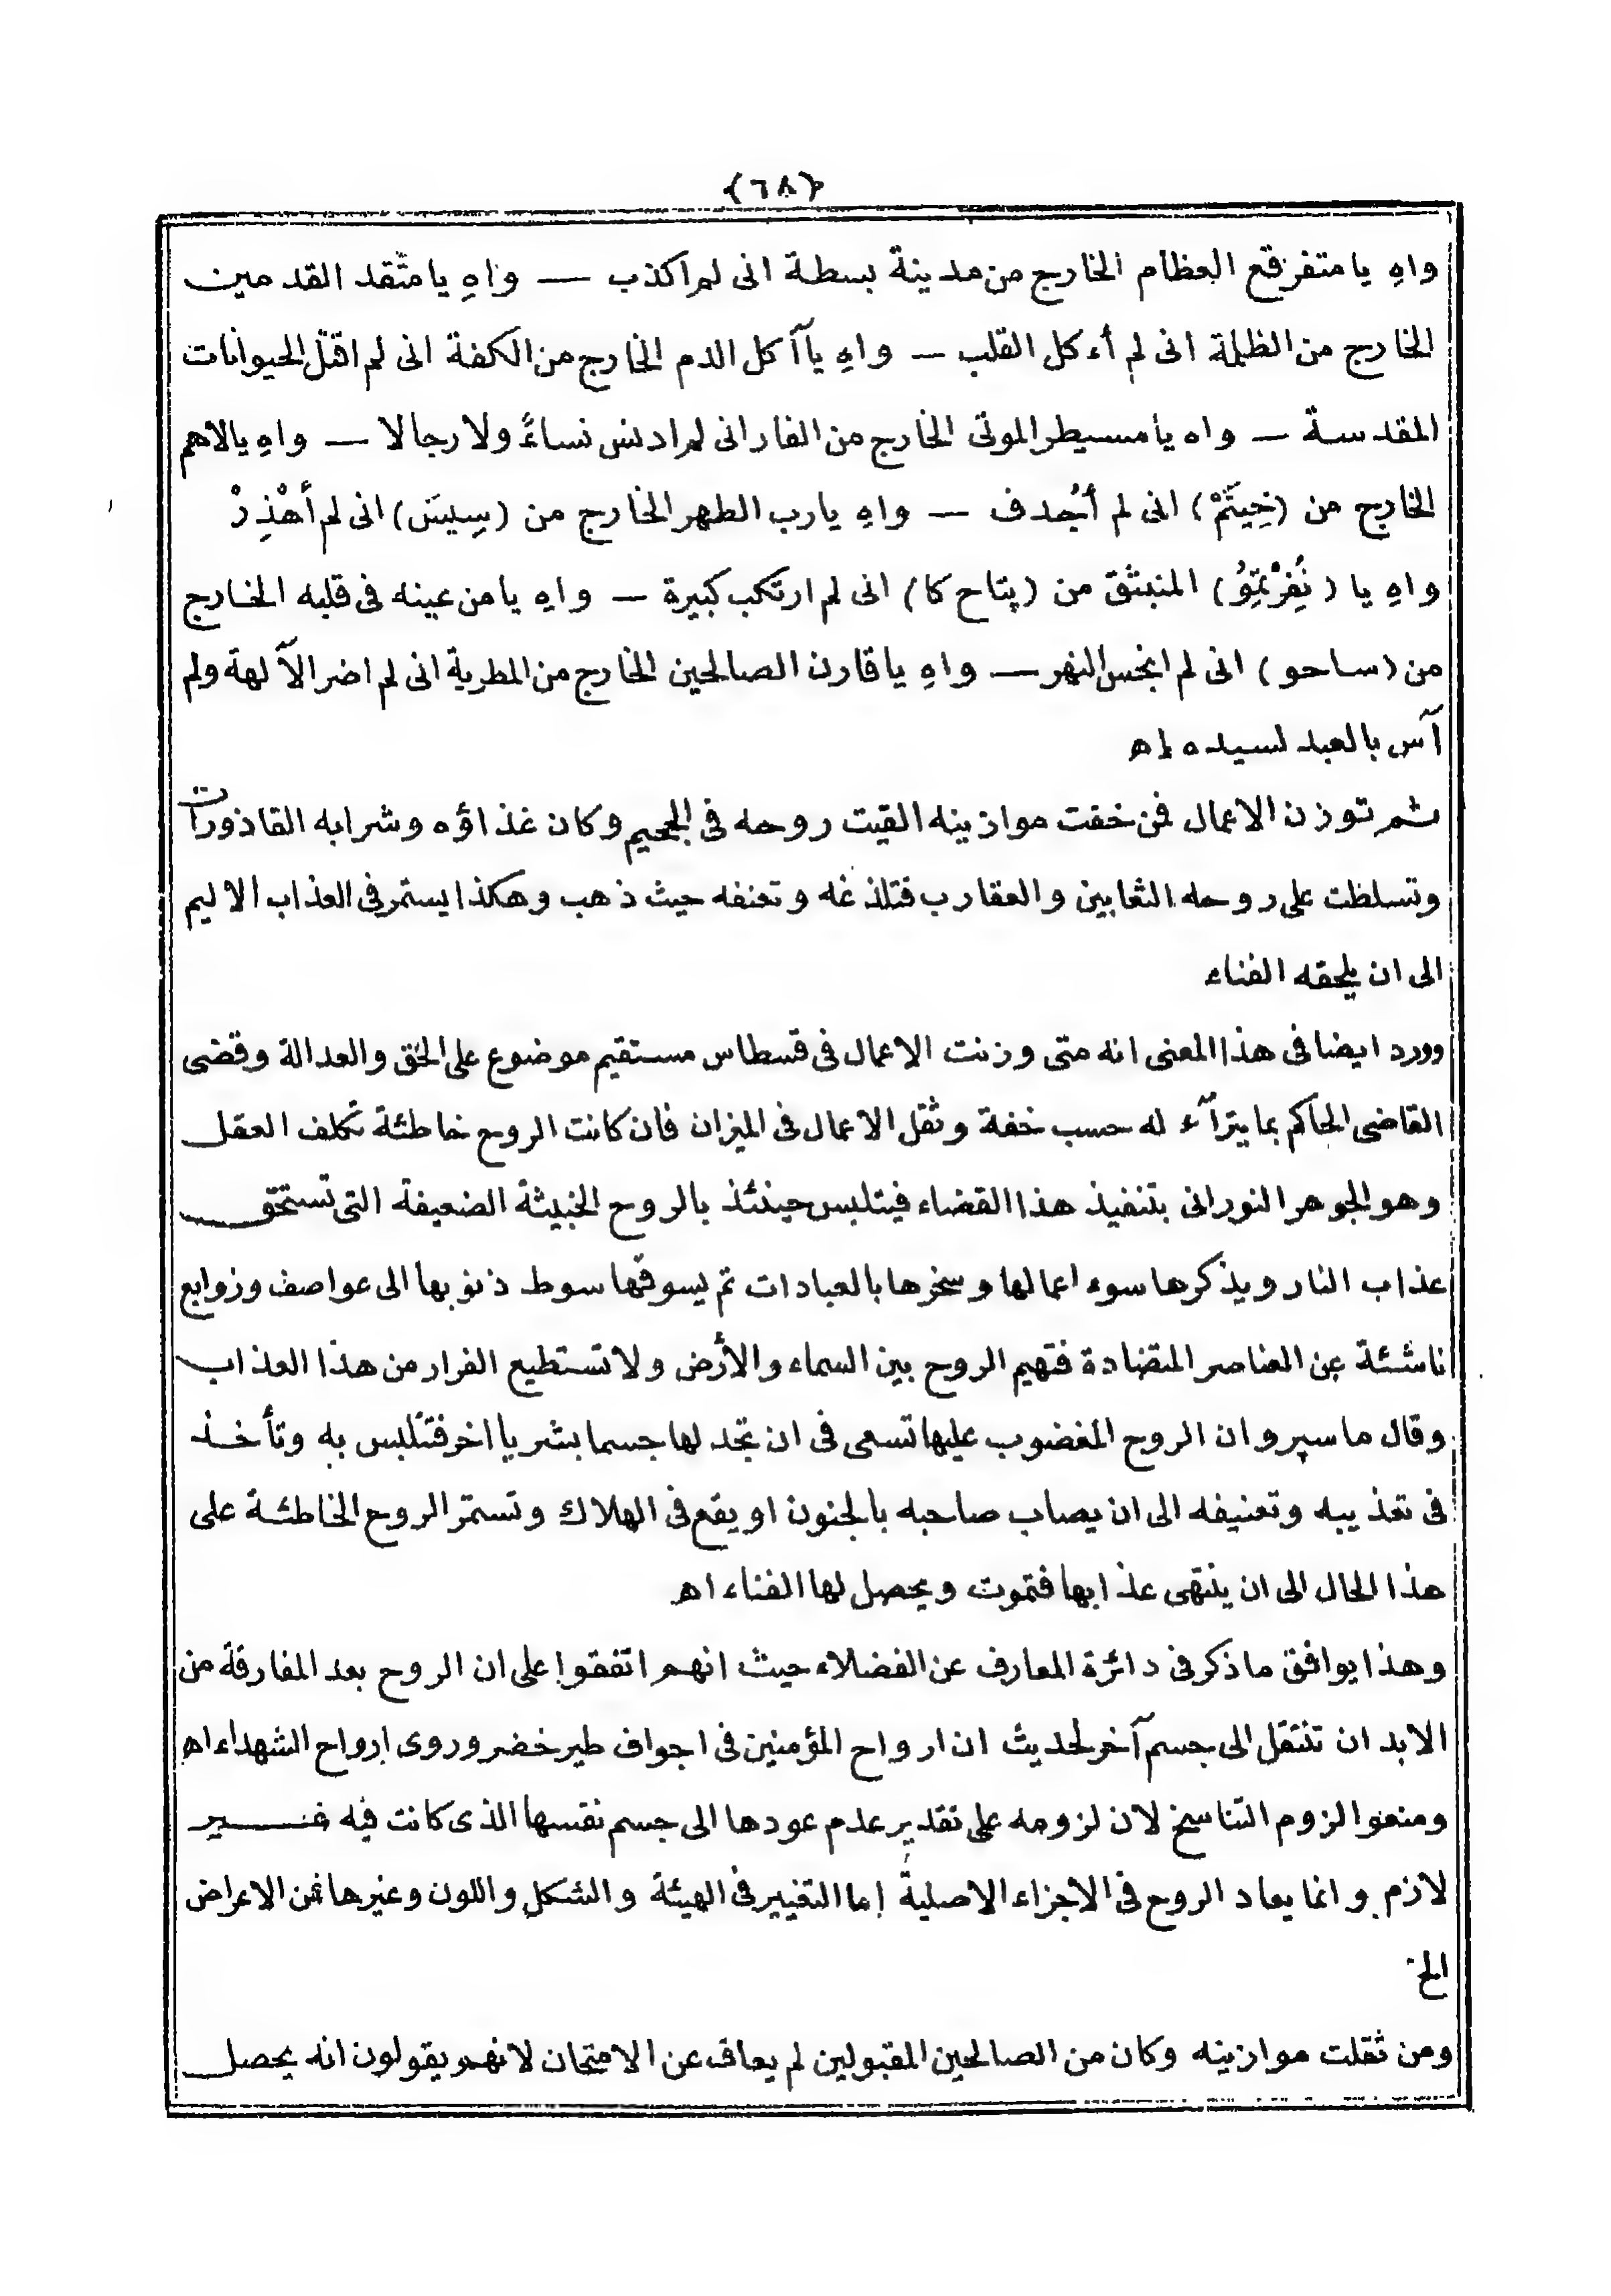 {٦٨}
واهِ يا متفرقع العظام الخارج من مدينة بسطة انى لم اكذب — واهِ يا متّقد القدمين
الخارج من الظلمة انى لم أءكل القلب — واهِ يا آكل الدم الخارج من الكفة انى لم اقتل الحيوانات
المقدسة — واه يا مسيطر الموتى الخارج من الفار انى لم ادنس نساءً ولا رجالا — واهِ يا
الخارج من (خِيتَمْ) انى لم أجدف — واهِ يا رب الطهر الخارج من (سِيسَ) انى لم أهْذِرْ
واهِ يا (نُفِرْتمِوُ) المنبثق من (پتاح كا) انى لم ارتكب كبيرة — واهِ يا من عينه فى قلبه الخارج
من (ساحو) انى لم انجس النهر — واهِ يا قارن الصالحين الخارج من المطرية انى لم اضر الآلهة ولم
آس بالعبد لسيده اه
ثم توزن الاعمال فمن خفت موازينه القيت روحه فى الجحيم وكان غذاؤه وشرابه القاذورات
وتسلطت على روحه الثعابين والعقارب فتلذغه وتعنفه حيث ذهب وهكذا يستمر فى العذاب الاليم
الى ان يلحقه الفناء
وورد ايضا فى هذا المعنى انه متى وزنت الاعمال فى قسطاس مستقيم موضوع على الحق والعدالة وقضى
القاضى الحاكم بما يترآء له حسب خفة وثقل الاعمال فى الميزان فان كانت الروح خاطئة تكلف العقل
وهو الجوهر النورانى بتنفيذ هذا القضاء فيتلبس حينئذ بالروح الخبيثة الضعيفة التى تستحق
عذاب النار ويذكرها سوء اعمالها وسخرها بالعبادات ثم يسوقها سوط ذنوبها الى عواصف وزوابع
ناشئة عن العناصر المتضادة فتهيم الروح بين السماء والأرض ولا تستطيع الفرار من هذا العذاب
وقال ماسپرو ان الروح المغضوب عليها تسعى فى ان تجد لها جسما بشريا اخر فتتلبس به وتأخذ
فى تعذيبه وتعنيفه الى ان يصاب صاحبه بالجنون او يقع فى الهلاك وتستمر الروح الخاطئة على
هذا الحال الى ان ينتهى عذابها فتموت ويحصل لها الفناء اه
وهذا يوافق ما ذكر فى دائرة المعارف عن الفضلاء حيث انهم اتفقوا على ان الروح بعد المفارقة من
الابد ان تنتقل الى جسم آخر لحديث ان ارواح المؤمنين فى اجواف طير خضر وروى ارواح الشهداء اه
ومنعوا لزوم التناسخ لان لزومه على تقدير عدم عودها الى جسم نفسها الذى كانت فيه غير
لازم وانما يعاد الروح فى الاجزاء الاصلية إما التغيير فى الهيئة والشكل واللون وغيرها فمن الاعراض
الخ
ومن ثقلت موازينه وكان من الصالحين المقبولين لم يعاف عن الامتحان لانهم يقولون انه يحصل